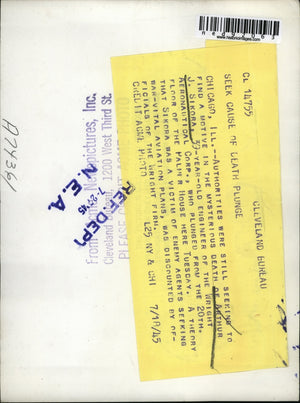 CL 14755
CLEVELAND BUREAU
SEEK CAUSE OF DEATH PLUNGE
CHICAGO, ILL.--AUTHORITIES WERE STILL SEEKING TO
FIND A MOTIVE IN THE MYSTERIOUS DEATH OF ARTHUR
J. SIKORA, 39-YEAR-OLD ENGINEER OF THE WRIGHT
AERONAUTICAL CORP., WHO PLUNGED FROM THE 20TH.
FLOOR OF THE PALMER HOUSE HERE TUESDAY. A THEORY
THAT SIKORA WAS A VICTIM OF ENEMY AGENTS SEEKING
WAR-VITAL AVIATION PLANS, WAS DISCOUNTED BY OF-
FICIALS OF THE WRIGHT FIRM.
CREDIT ACME PHOTO 425 NY & CHI 7/18/45
REF. DEPT.
7-21-45
N. E. A.
pictures, Inc.
1200 West Third St.
Cleveland
PLEASE
From
www.historicimages.com